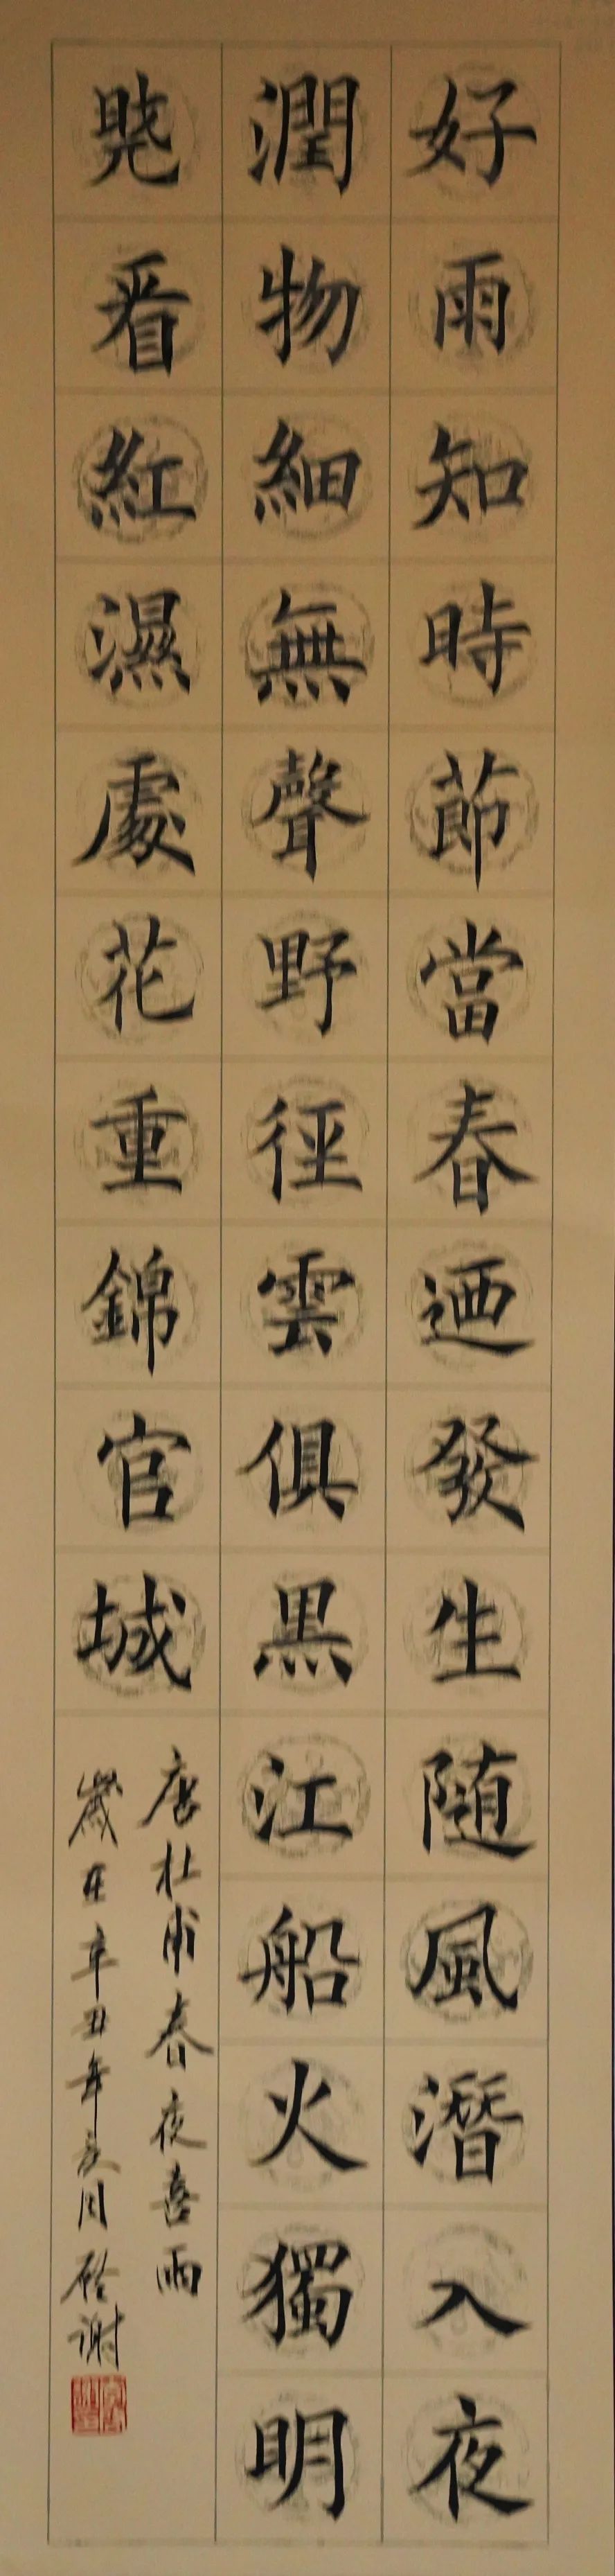 好雨知時節當春迺發生随風潛入夜
潤物細無聲野徑雲俱黒江船火獨明
曉看紅濕處花重錦官城
唐杜甫春夜喜雨
歲在辛丑年亥月 谢